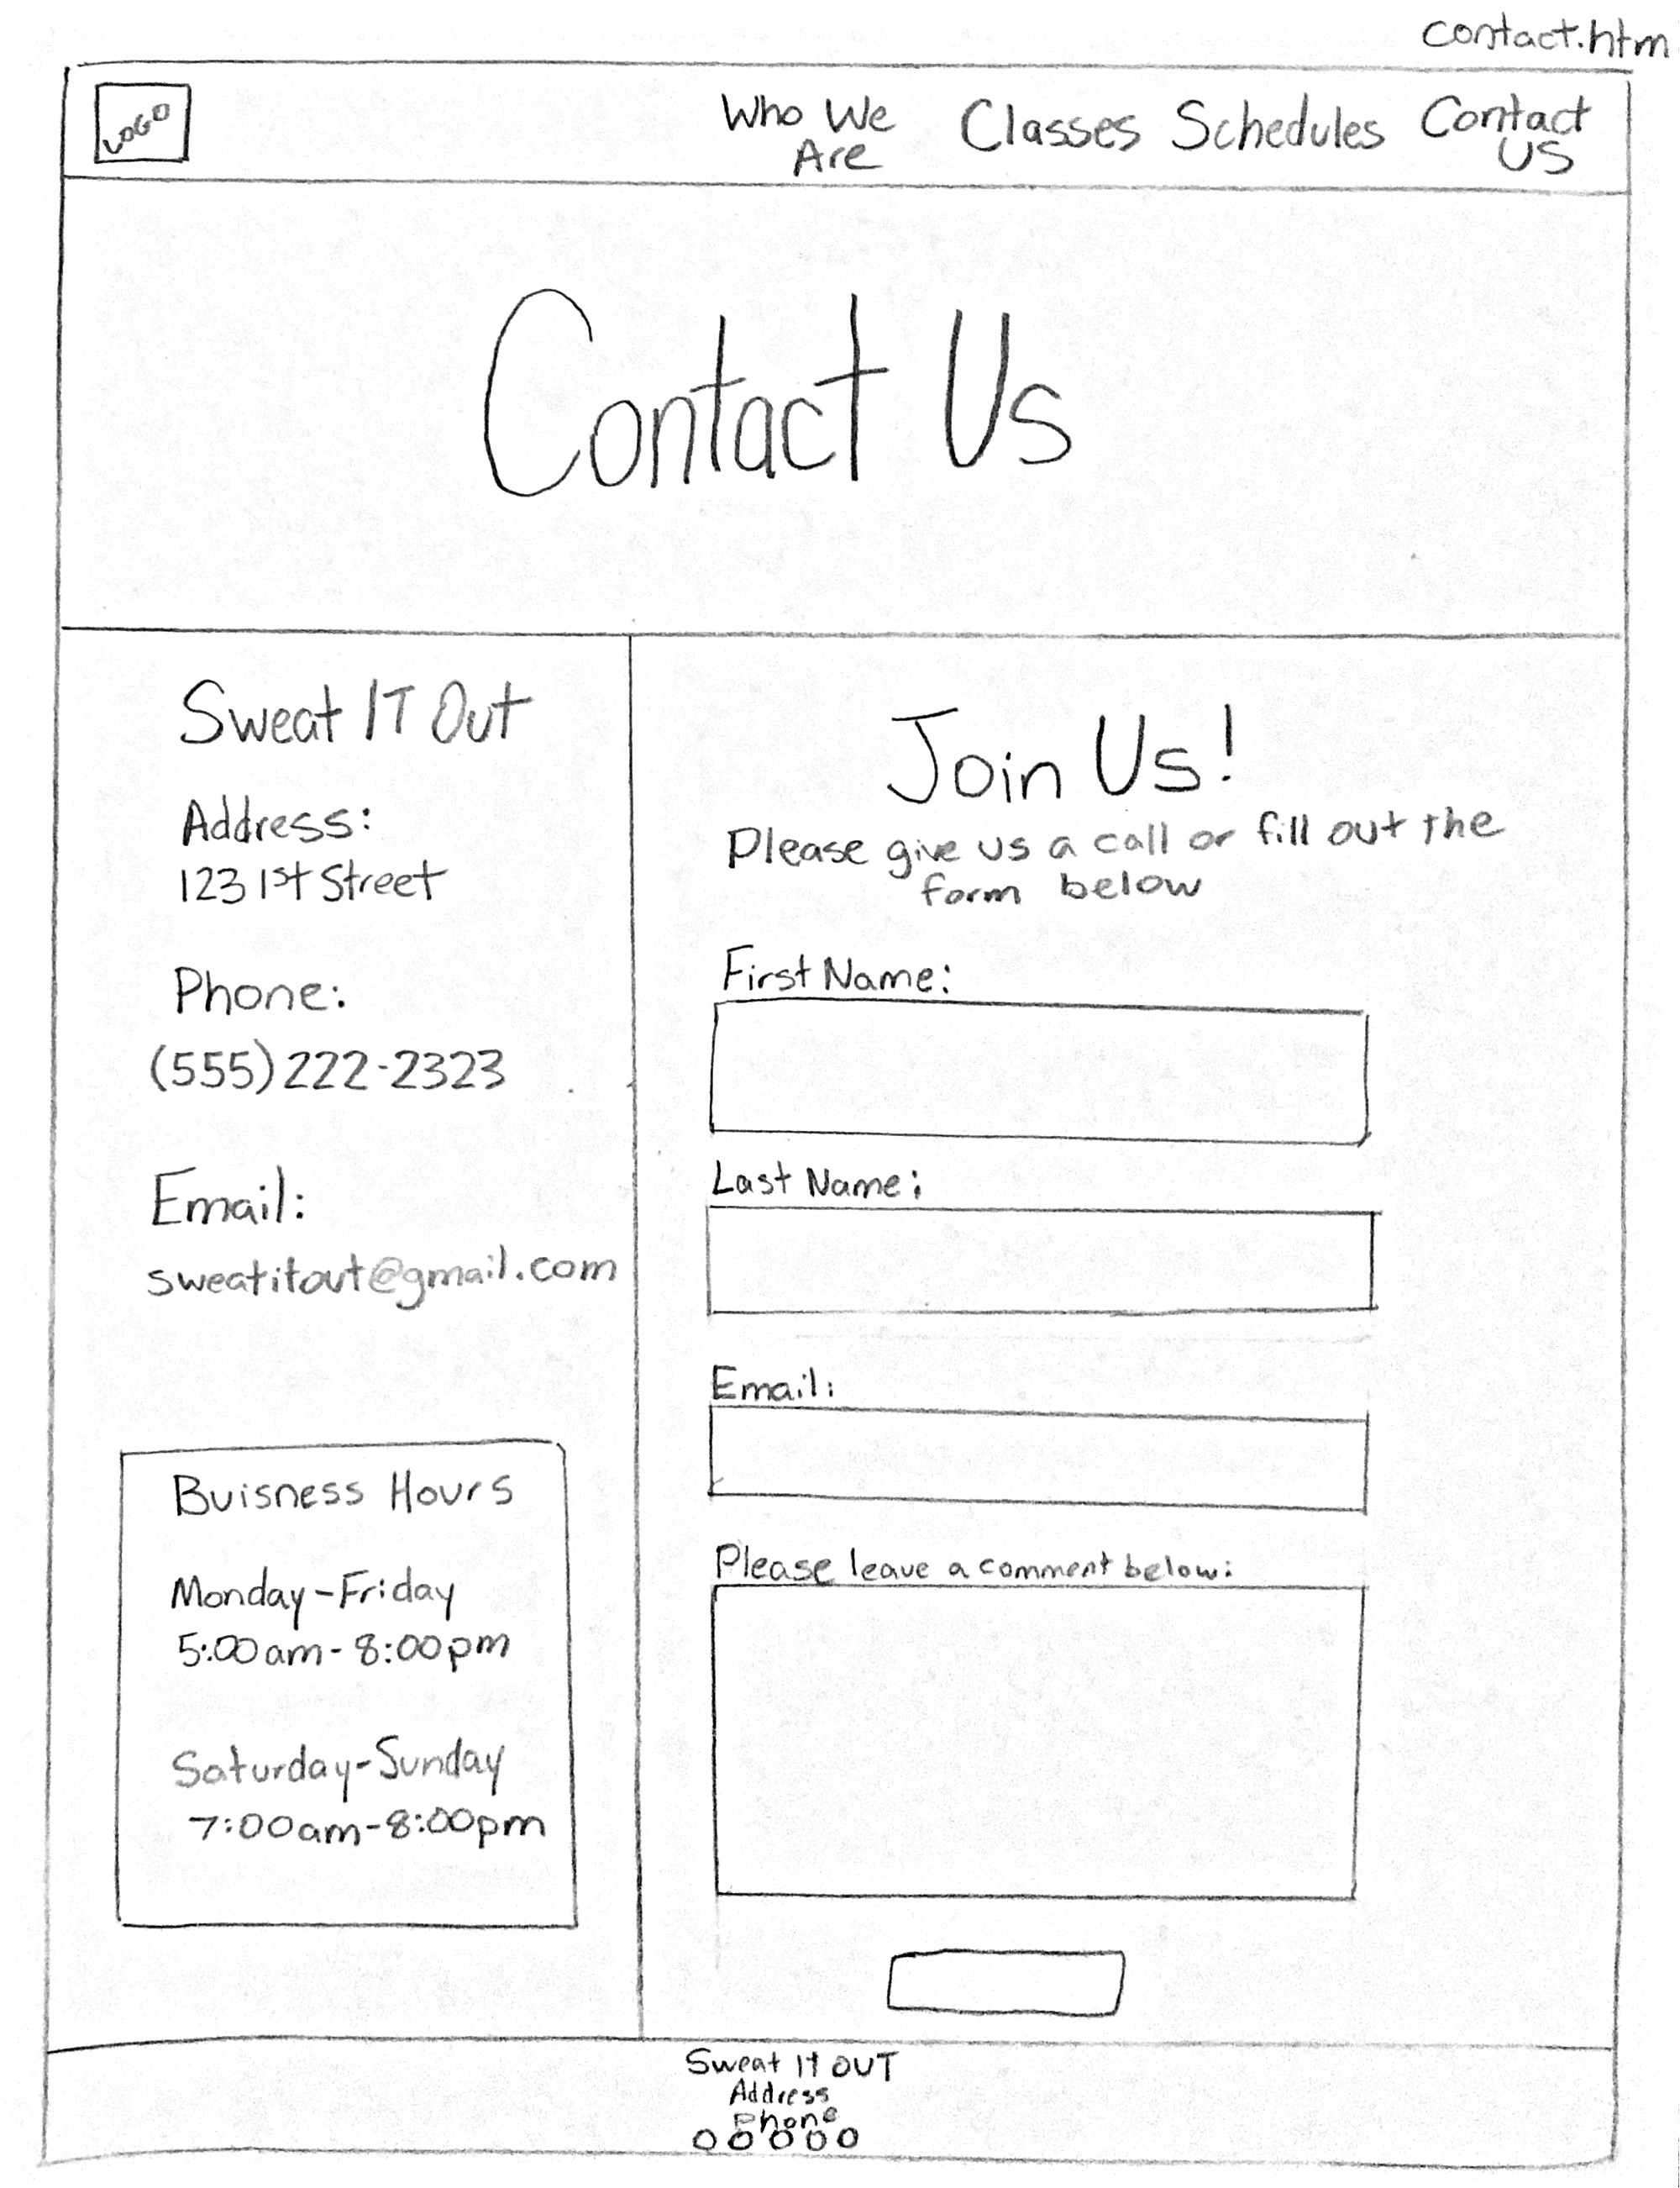 contact.htm
LOGO
Who We
Are
Classes
Schedules
Contact
US
Contact Us
Sweat IT Out
Address:
123 1st Street
Phone:
(555) 222-2323
Email:
sweatitout@gmail.com
Buisness Hours
Monday-Friday
5:00am-8:00pm
Saturday-Sunday
7:00am-8:00pm
Join Us!
Please give us a call or fill out the
form below
First Name:
Last Name:
Email:
Please leave a comment below:
Sweat It OUT
Address
Phone